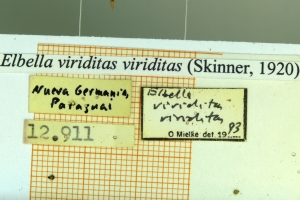 Elbella viriditas viriditas (Skinner, 1920)
Nueva Germania,
Paraguai
12.911
Elbella
viriditas
viriditas
93
O Mielke det. 19